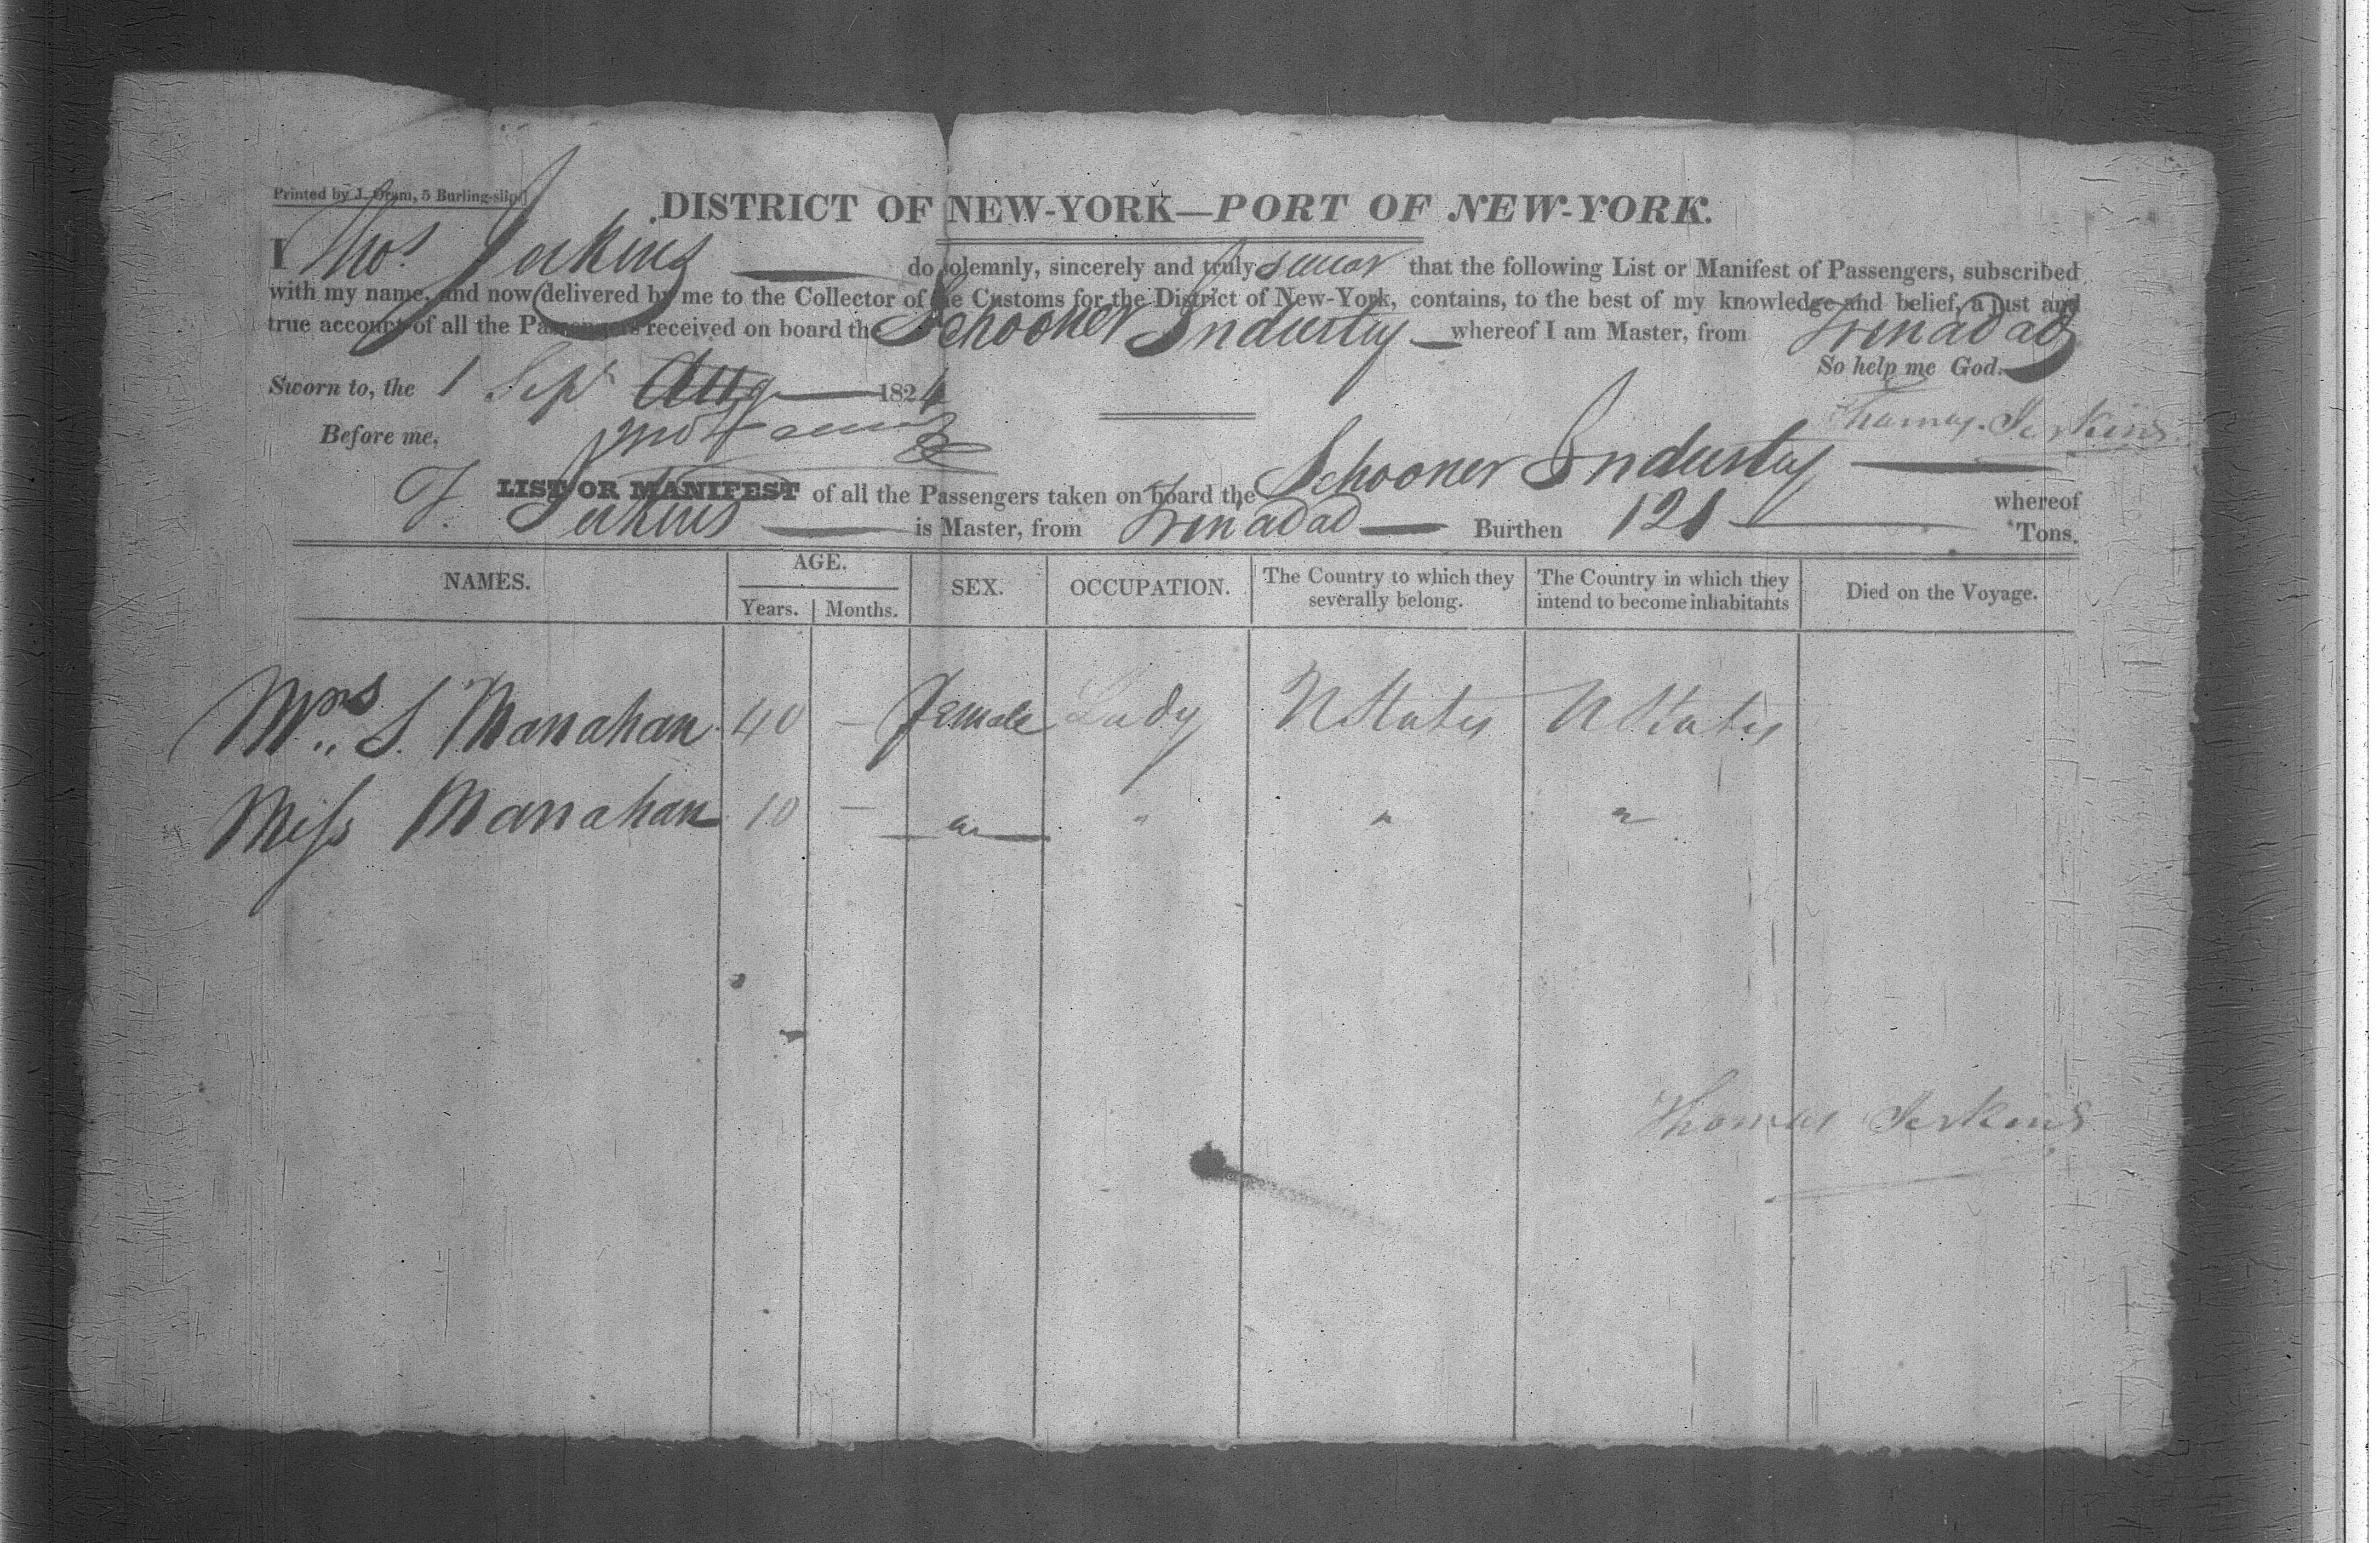 Printed by J. Oram, 5 Burling-slip.
DISTRICT OF NEW-YORK—PORT OF NEW-YORK.
I Thos Jerkins do solemnly, sincerely and truly swear that the following List or Manifest of Passengers, subscribed
with my name, and now delivered by me to the Collector of the Customs for the District of New-York, contains, to the best of my knowledge and belief, a just and
true account of all the Passengers received on board the Schooner Industry whereof I am Master, from Trinadad
So help me God.
Sworn to, the 1 Sept Aug 1824
Thomas Jerkins
Before me,
LIST OR MANIFEST of all the Passengers taken on board the Schooner Industry whereof
T. Jerkins is Master, from Trinadad Burthen 121 Tons.
NAMES. AGE. Years. Months. SEX. OCCUPATION. The Country to which they severally belong. The Country in which they intend to become inhabitants Died on the Voyage.
Mrs S. Manahan 40 — Female Lady U States U States
Miss Manahan 10 — " " " "
Thomas Jerkins